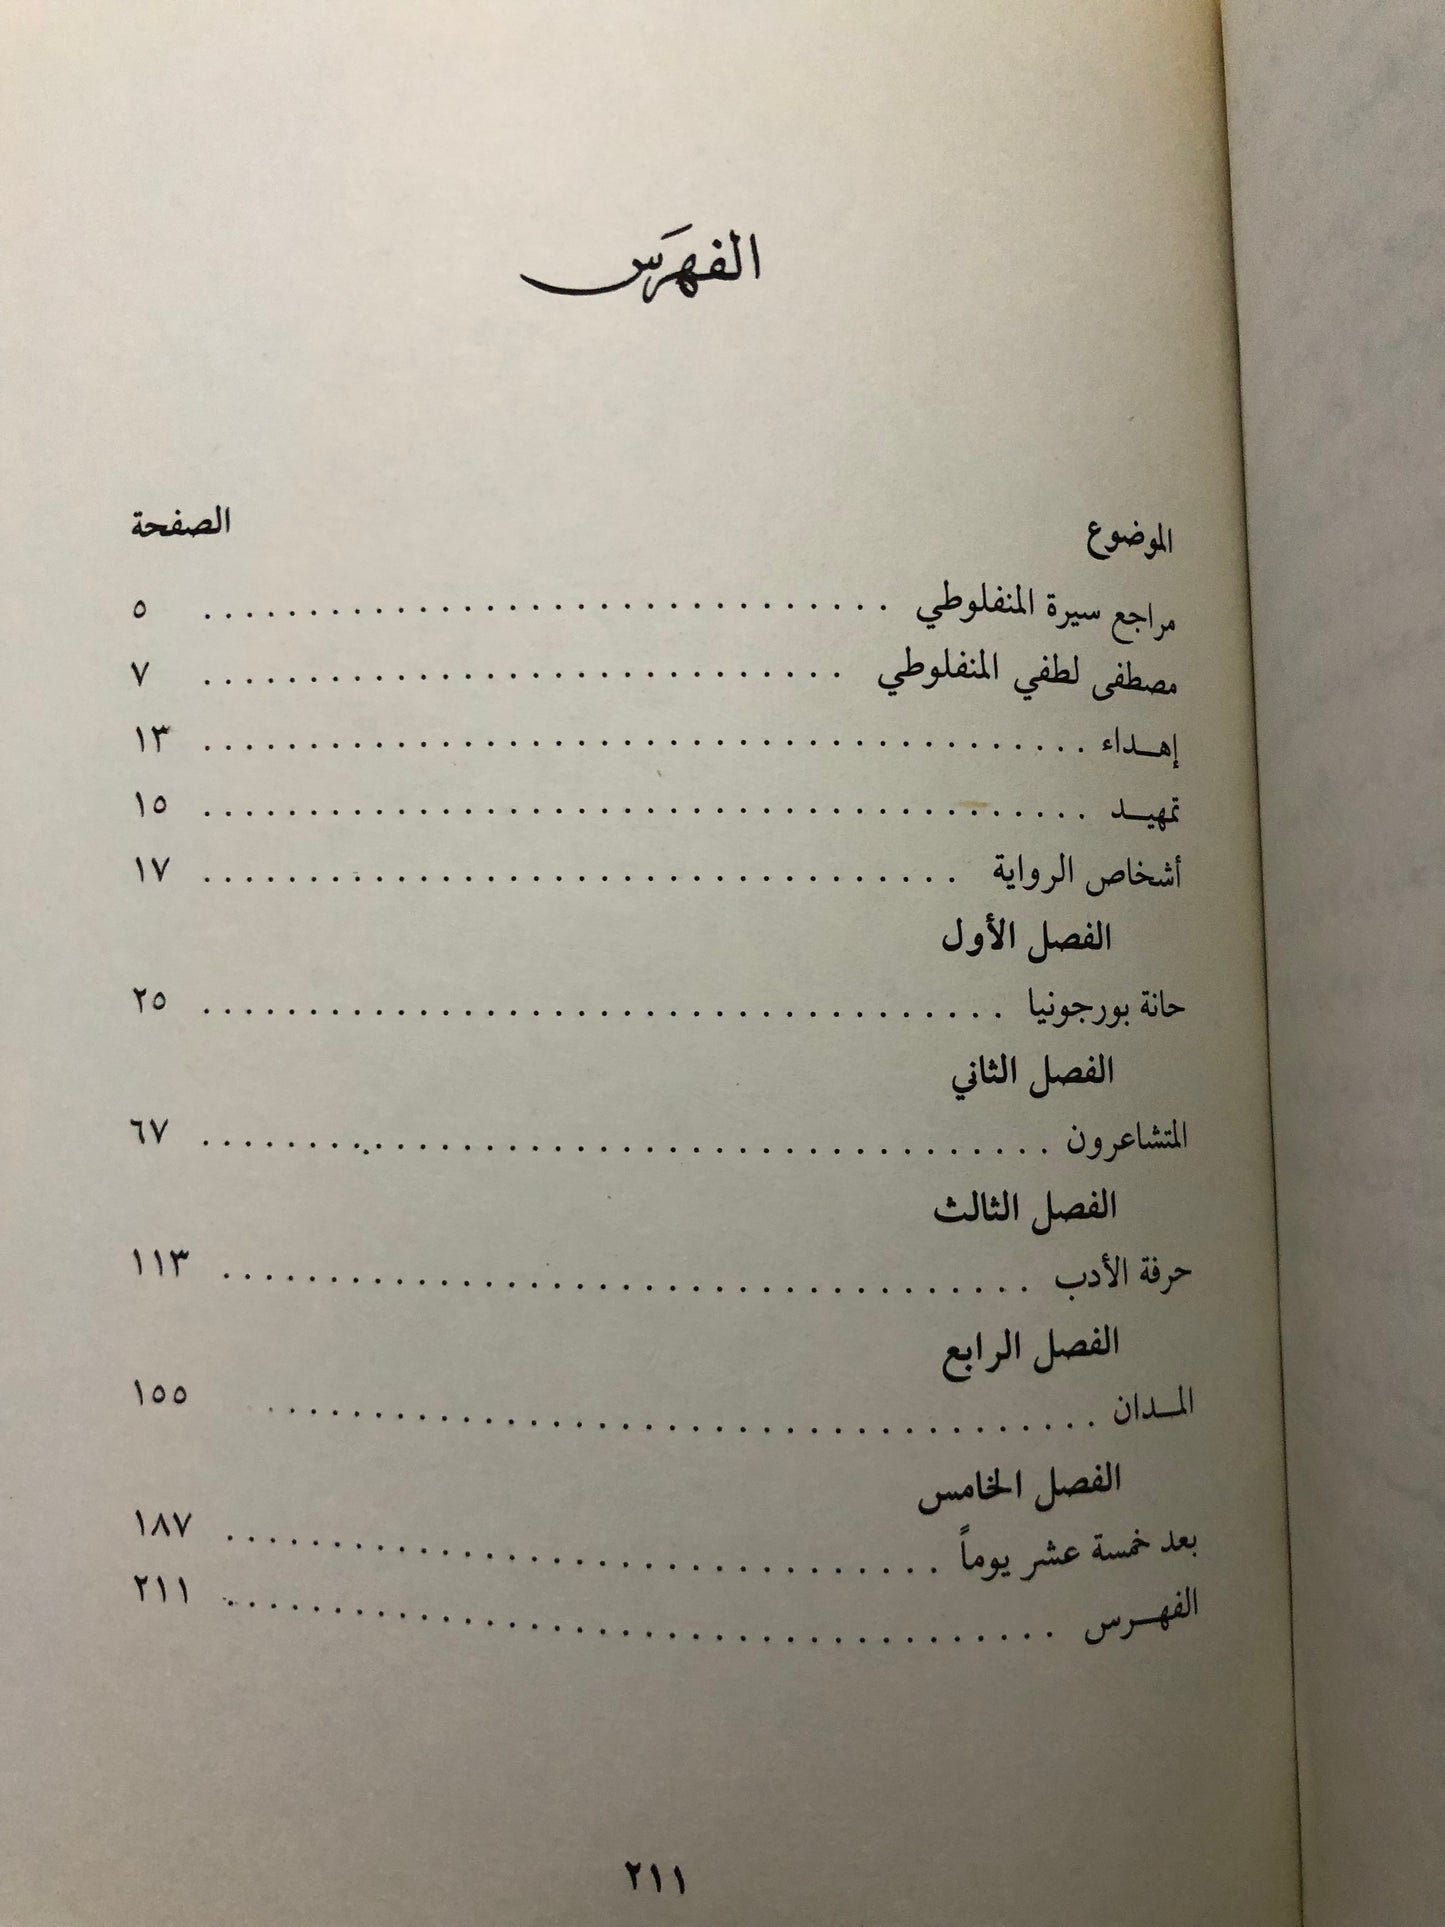 الفهرَس
الموضوع الصفحة
مراجع سيرة المنفلوطي . . . . . . . . . . . . . . . . . . . . . . . . . . . . . . . . . ٥
مصطفى لطفي المنفلوطي . . . . . . . . . . . . . . . . . . . . . . . . . . . . . . . ٧
إهـــداء . . . . . . . . . . . . . . . . . . . . . . . . . . . . . . . . . . . . . . . . . . ١٣
تمهيـــد . . . . . . . . . . . . . . . . . . . . . . . . . . . . . . . . . . . . . . . . . . ١٥
أشخاص الرواية . . . . . . . . . . . . . . . . . . . . . . . . . . . . . . . . . . . . ١٧
الفصل الأول
حانة بورجونيا . . . . . . . . . . . . . . . . . . . . . . . . . . . . . . . . . . . . . . ٢٥
الفصل الثاني
المتشاعرون . . . . . . . . . . . . . . . . . . . . . . . . . . . . . . . . . . . . . . . . ٦٧
الفصل الثالث
حرفة الأدب . . . . . . . . . . . . . . . . . . . . . . . . . . . . . . . . . . . . . . ١١٣
الفصل الرابع
المـــدان . . . . . . . . . . . . . . . . . . . . . . . . . . . . . . . . . . . . . . . ١٥٥
الفصل الخامس
بعد خمسة عشر يوماً . . . . . . . . . . . . . . . . . . . . . . . . . . . . . . . . . ١٨٧
الفهـــرس . . . . . . . . . . . . . . . . . . . . . . . . . . . . . . . . . . . . . . . ٢١١
٢١١